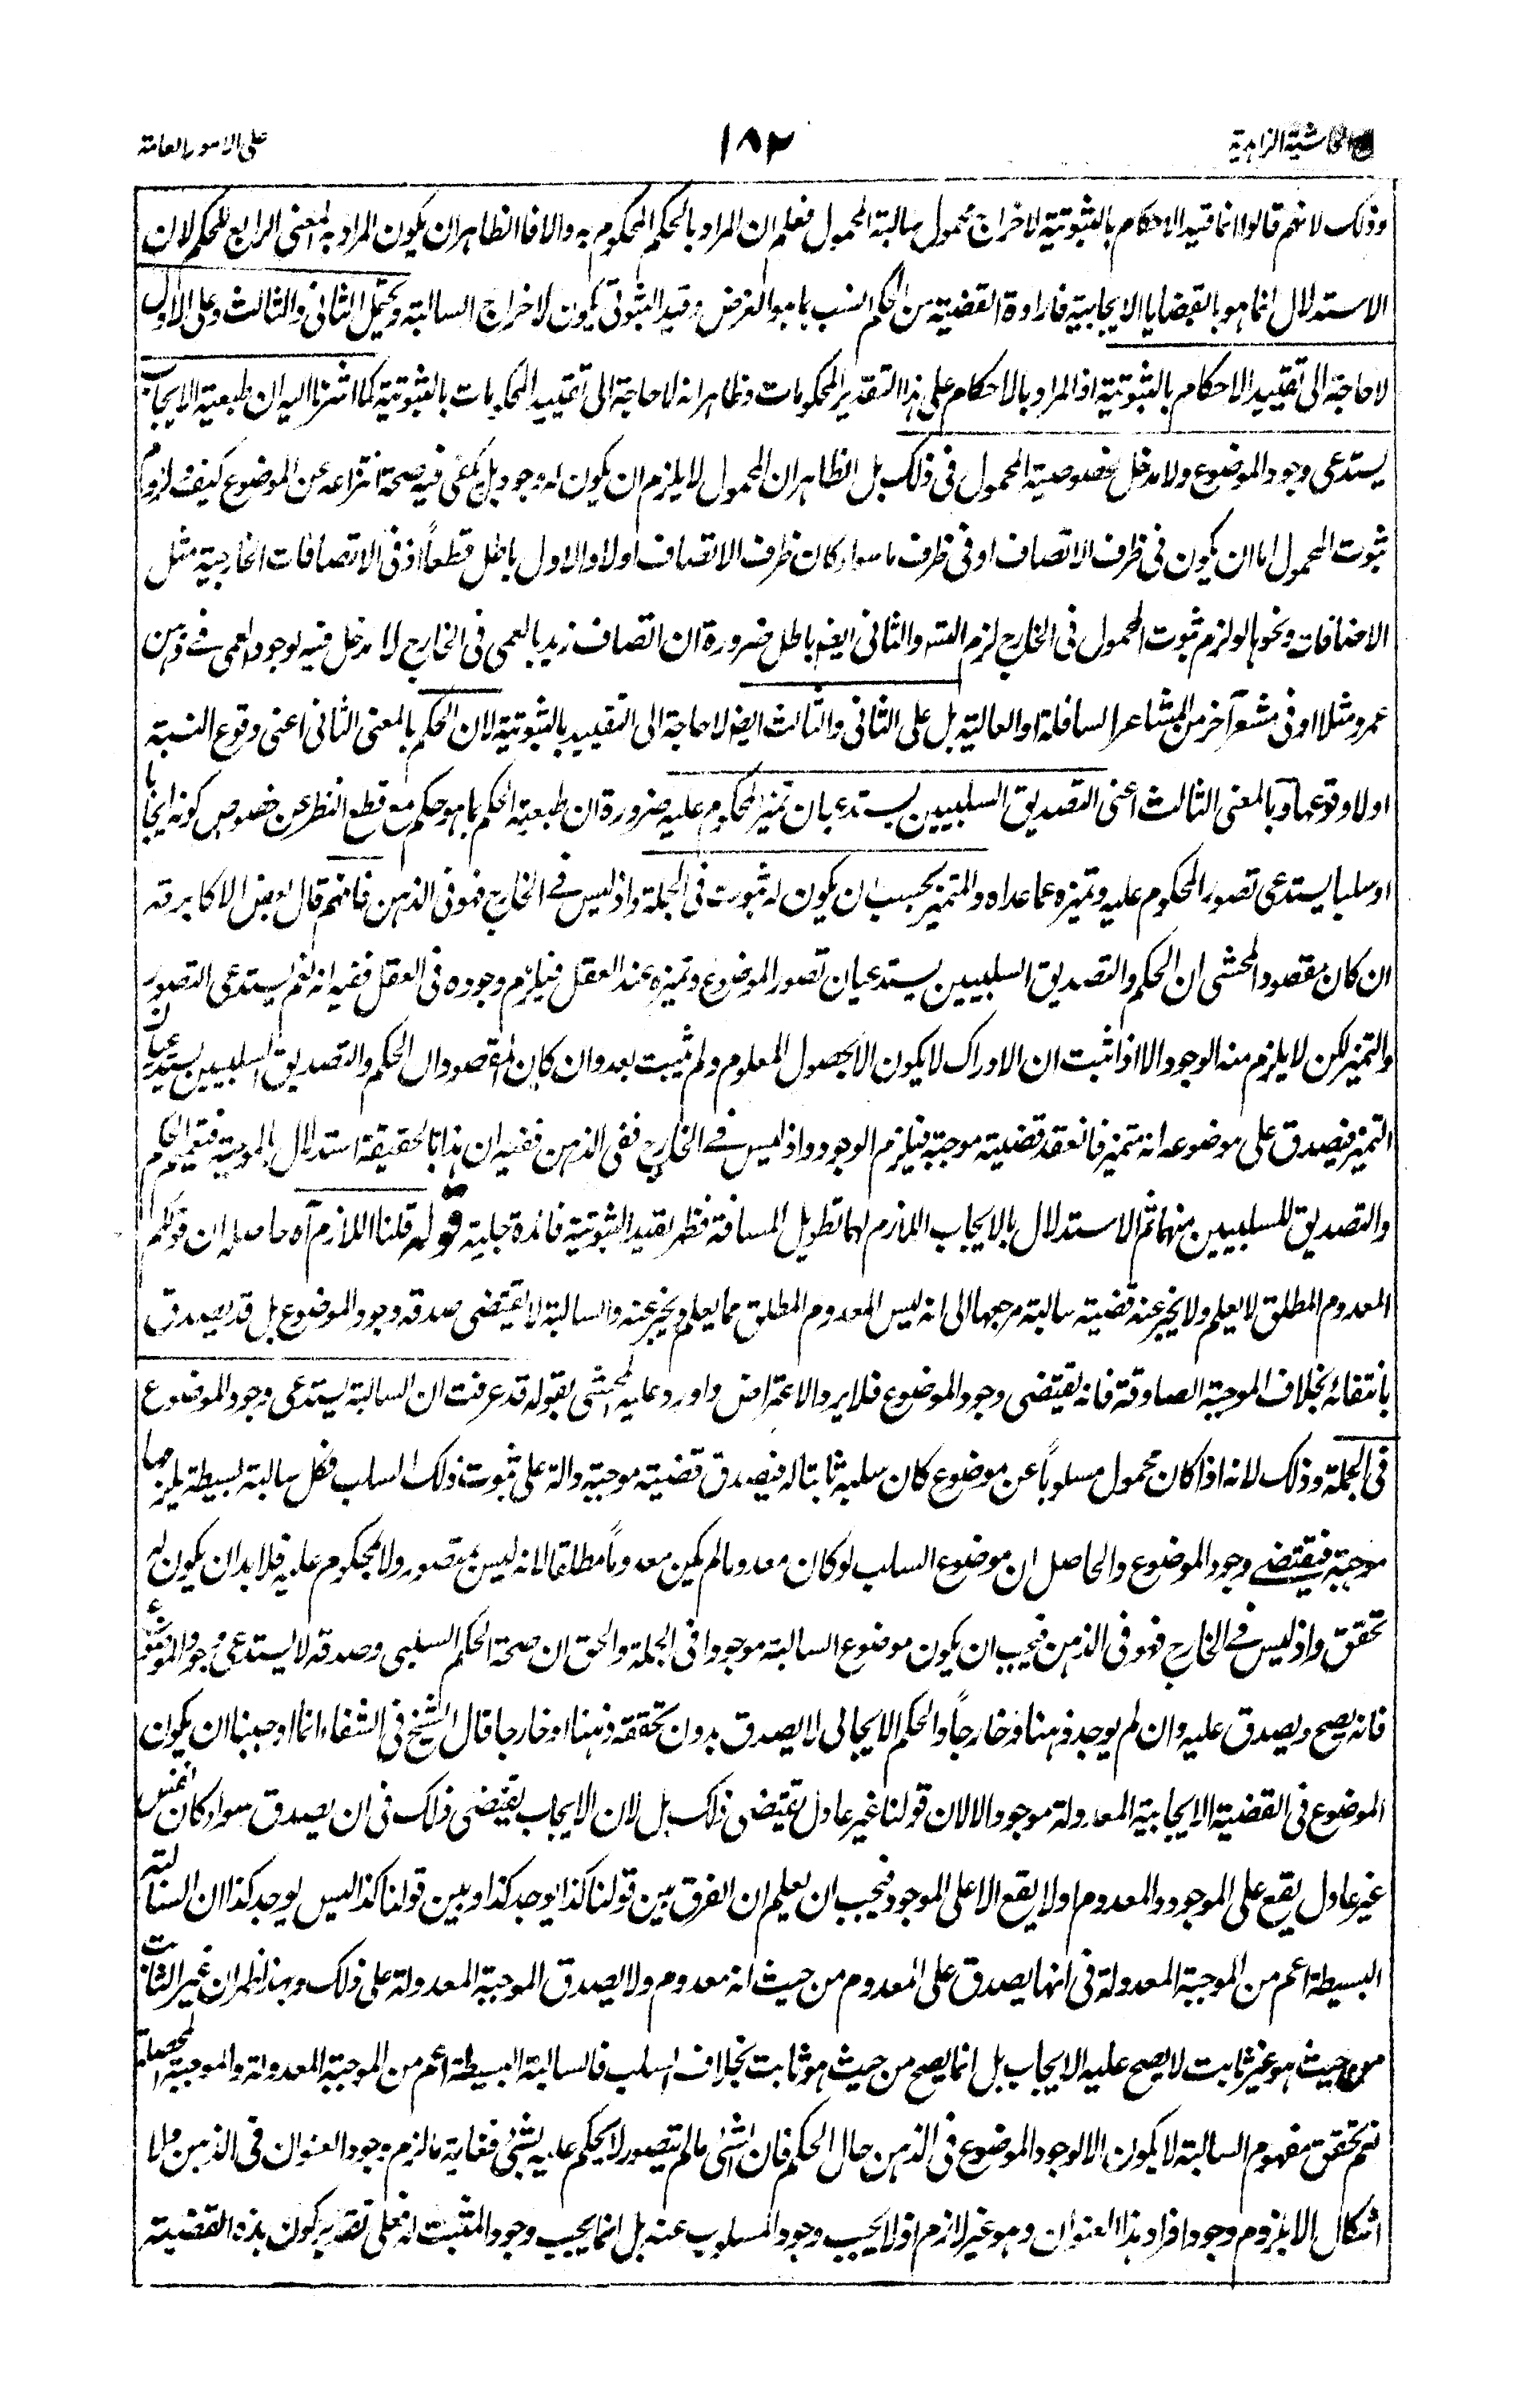 الحاشية الزاهدية ١٨٢ على الامور العامة
وذلك لانهم قالوا انما قيد الاحكام بالثبوتية لاخراج محمول سالبة المحمول فعلم ان المراد بالحكم المحكوم به والا فالظاهر ان يكون المراد به المعنى الرابع للحكم لان
الاستدلال انما هو بالقضايا الايجابية فارادة القضية من الحكم انسب بما هو الغرض وقيد الثبوتى يكون لاخراج السالبة ويحتمل الثانى والثالث وعلى الاول
لا حاجة الى تقييد الاحكام بالثبوتية اذ المراد بالاحكام على هذا التقدير المحكومات وظاهر انه لا حاجة الى تقييد المحكومات بالثبوتية كما اشرنا اليه ان طبيعة الايجاب
يستدعى وجود الموضوع ولا مدخل لخصوصية المحمول فى ذلك بل الظاهر ان المحمول لا يلزم ان يكون له وجود بل يكفى فيه صحة انتزاعه عن الموضوع كيف ولزوم
ثبوت المحمول اما ان يكون فى ظرف الاتصاف او فى ظرف ما سواء كان ظرف الاتصاف او لا والاول باطل قطعاً اذ فى الاتصافات الخارجية مثل
الاضافات ونحوها لو لزم ثبوت المحمول فى الخارج لزم التسـ والثانى ايضـ باطل ضرورة ان اتصاف زيد بالعمى فى الخارج لا مدخل فيه لوجود العمى فى ذهن
عمرو مثلا او فى مشعر آخر من المشاعر السافلة او العالية بل على الثانى والثالث ايضـ لا حاجة الى التقييد بالثبوتية لان الحكم بالمعنى الثانى اعنى وقوع النسبة
او لا وقوعها وبالمعنى الثالث اعنى التصديق السلبيين يستدعيان تميز المحكوم عليه ضرورة ان طبيعة الحكم بما هو حكم مع قطع النظر عن خصوص كونه ايجابا
او سلبا يستدعى تصور المحكوم عليه وتميزه عما عداه والمتميز يجب ان يكون له ثبوت فى الجملة واذ ليس فى الخارج فهو فى الذهن فافهم قال بعض الاكابر قد
ان كان مقصود المحشى ان الحكم والتصديق السلبيين يستدعيان تصور الموضوع وتميزه عند العقل فيلزم وجوده فى العقل ففيه انه نعم يستدعى التصور
والتميز لكن لا يلزم منه الوجود الا اذا ثبت ان الادراك لا يكون الا بحصول المعلوم ولم يثبت بعد وان كان المقصود ان الحكم والتصديق السلبيين يستدعيان
التميز فيصدق على موضوعه انه متميز فانعقد قضية موجبة فيلزم الوجود واذ ليس فى الخارج ففى الذهن ففيه ان هذا بالحقيقة استدلال بالموجبة فتعميم الحكم
والتصديق للسلبيين منهما ثم الاستدلال بالايجاب اللازم لهما تطويل المسافة فظهر لقيد الثبوتية فائدة جلية قوله قلنا اللازم آه حاصله ان قولكم
المعدوم المطلق لا يعلم ولا يخبر عنه قضية سالبة مرجعها الى انه ليس المعدوم المطلق مما يعلم ويخبر عنه والسالبة لا يقتضى صدقه وجود الموضوع بل قد يصدق
بانتفائه بخلاف الموجبة الصادقة فانه يقتضى وجود الموضوع فلا يرد الاعتراض واورد عليه المحشى بقوله قد عرفت ان السالبة يستدعى وجود الموضوع
فى الجملة وذلك لانه اذا كان محمول مسلوباً عن موضوع كان سلبه ثابتا له فيصدق قضية موجبة دالة على ثبوت ذلك السلب فكل سالبة بسيطة يلزمها
موجبة فيقتضى وجود الموضوع والحاصل ان موضوع السلب لو كان معدوما لم يكن معدوماً مطلقا لانه ليس بمتصور ولا محكوم عليه فلا بد ان يكون له
تحقق واذ ليس فى الخارج فهو فى الذهن فيجب ان يكون موضوع السالبة موجودا فى الجملة والحق ان صحة الحكم السلبى وصدقه لا يستدعى وجود الموضوع
فانه يصح ويصدق عليه وان لم يوجد ذهنا وخارجاً والحكم الايجابى لا يصدق بدون تحققه ذهنا او خارجا قال الشيخ فى الشفاء انما اوجبنا ان يكون
الموضوع فى القضية الايجابية المعدولة موجودا لا لان قولنا غير عادل يقتضى ذلك بل لان الايجاب يقتضى ذلك فى ان يصدق سواء كان نفس
غير عادل يقع على الموجود والمعدوم او لا يقع الا على الموجود فيجب ان يعلم ان الفرق بين قولنا كذا يوجد كذا وبين قولنا كذا ليس يوجد كذا ان السالبة
البسيطة اعم من الموجبة المعدولة فى انها يصدق على المعدوم من حيث انه معدوم ولا يصدق الموجبة المعدولة على ذلك وبهذا ظهر ان غير الثابت
من حيث هو غير ثابت لا يصح عليه الايجاب بل انما يصح من حيث هو ثابت بخلاف السلب فالسالبة البسيطة اعم من الموجبة المعدولة والموجبة المحصلة
نعم تحقق مفهوم السالبة لا يكون الا لوجود الموضوع فى الذهن حال الحكم فان الشئ ما لم يتصور لا يحكم عليه بشئ فغاية ما لزم وجود العنوان فى الذهن ولا
اشكال الا بلزوم وجود افراد هذا العنوان وهو غير لازم اذ لا يجب وجود المسلوب عنه بل انما يجب وجود المثبت له فعلى تقدير كون هذه القضية